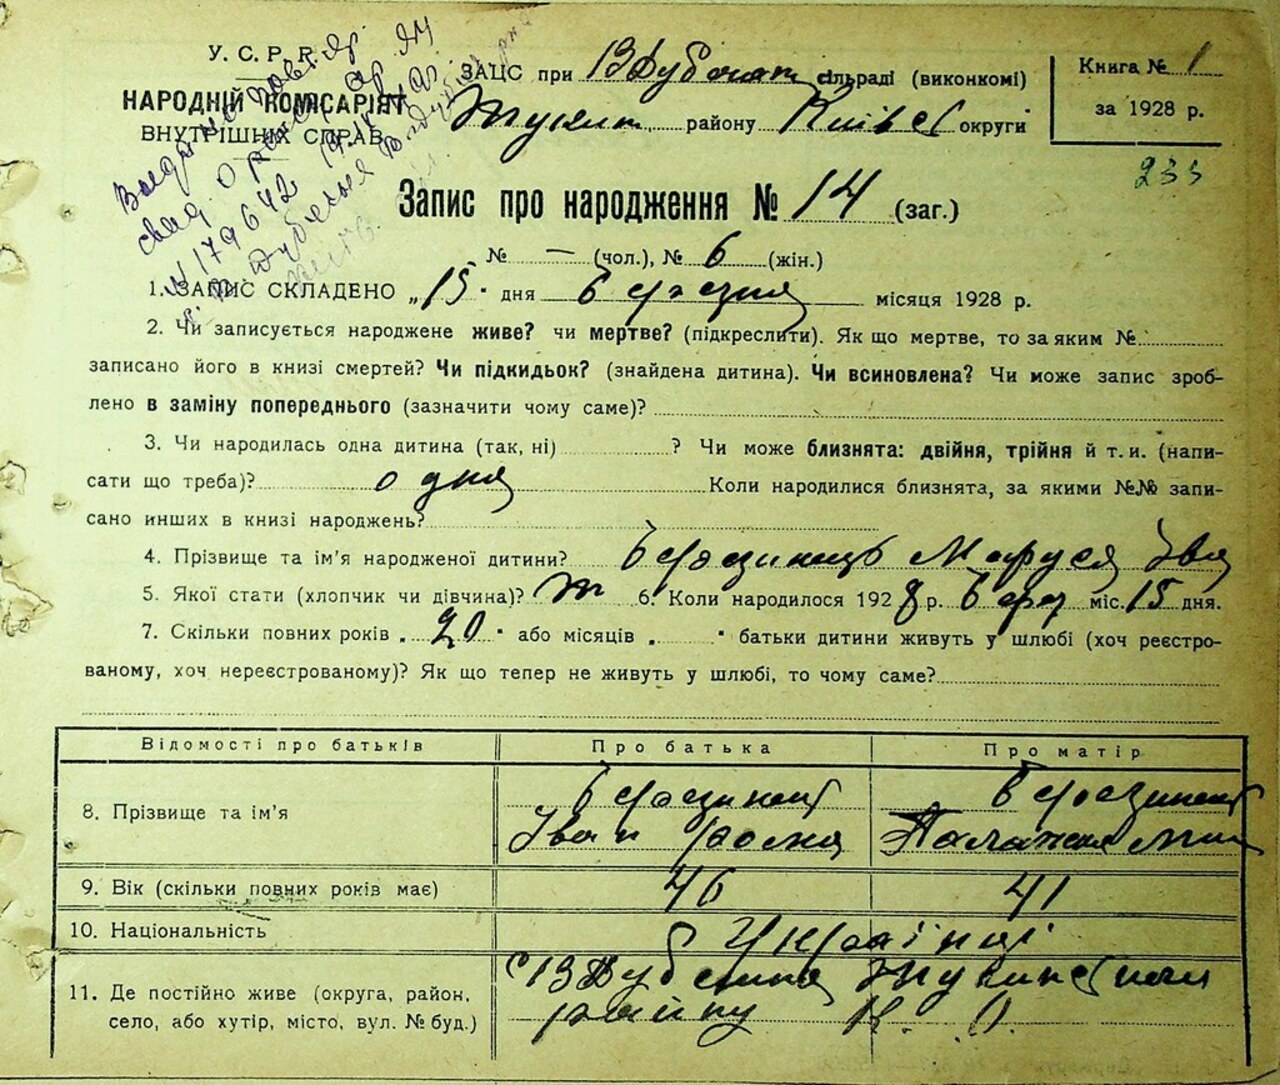 У. С. Р. Р.
НАРОДНІЙ КОМІСАРІЯТ
ВНУТРІШНІХ СПРАВ
ЗАЦС при сільраді (виконкомі)
району Київс округи
Книга № 1
за 1928 р.
233
№ 179642
Запис про народження № 14 (заг.)
№ — (чол.), № 6 (жін.)
1. ЗАПИС СКЛАДЕНО „15" дня березня місяця 1928 р.
2. Чи записується народжене живе? чи мертве? (підкреслити). Як що мертве, то за яким №
записано його в книзі смертей? Чи підкидьок? (знайдена дитина). Чи всиновлена? Чи може запис зроб-
лено в заміну попереднього (зазначити чому саме)?
3. Чи народилась одна дитина (так, ні) ? Чи може близнята: двійня, трійня й т. и. (напи-
сати що треба)? одна Коли народилися близнята, за якими №№ запи-
сано инших в книзі народжень?
4. Прізвище та ім'я народженої дитини? Маруся Ів
5. Якої стати (хлопчик чи дівчина)? ж 6. Коли народилося 1928 р. берез міс. 15 дня.
7. Скільки повних років „20" або місяців „ " батьки дитини живуть у шлюбі (хоч реєстро-
ваному, хоч нереєстрованому)? Як що тепер не живуть у шлюбі, то чому саме?
Відомості про батьків Про батька Про матір
8. Прізвище та ім'я
Іван
9. Вік (скільки повних років має) 46 41
10. Національність Украінці
11. Де постійно живе (округа, район,
село, або хутір, місто, вул. № буд.)
району К. О.